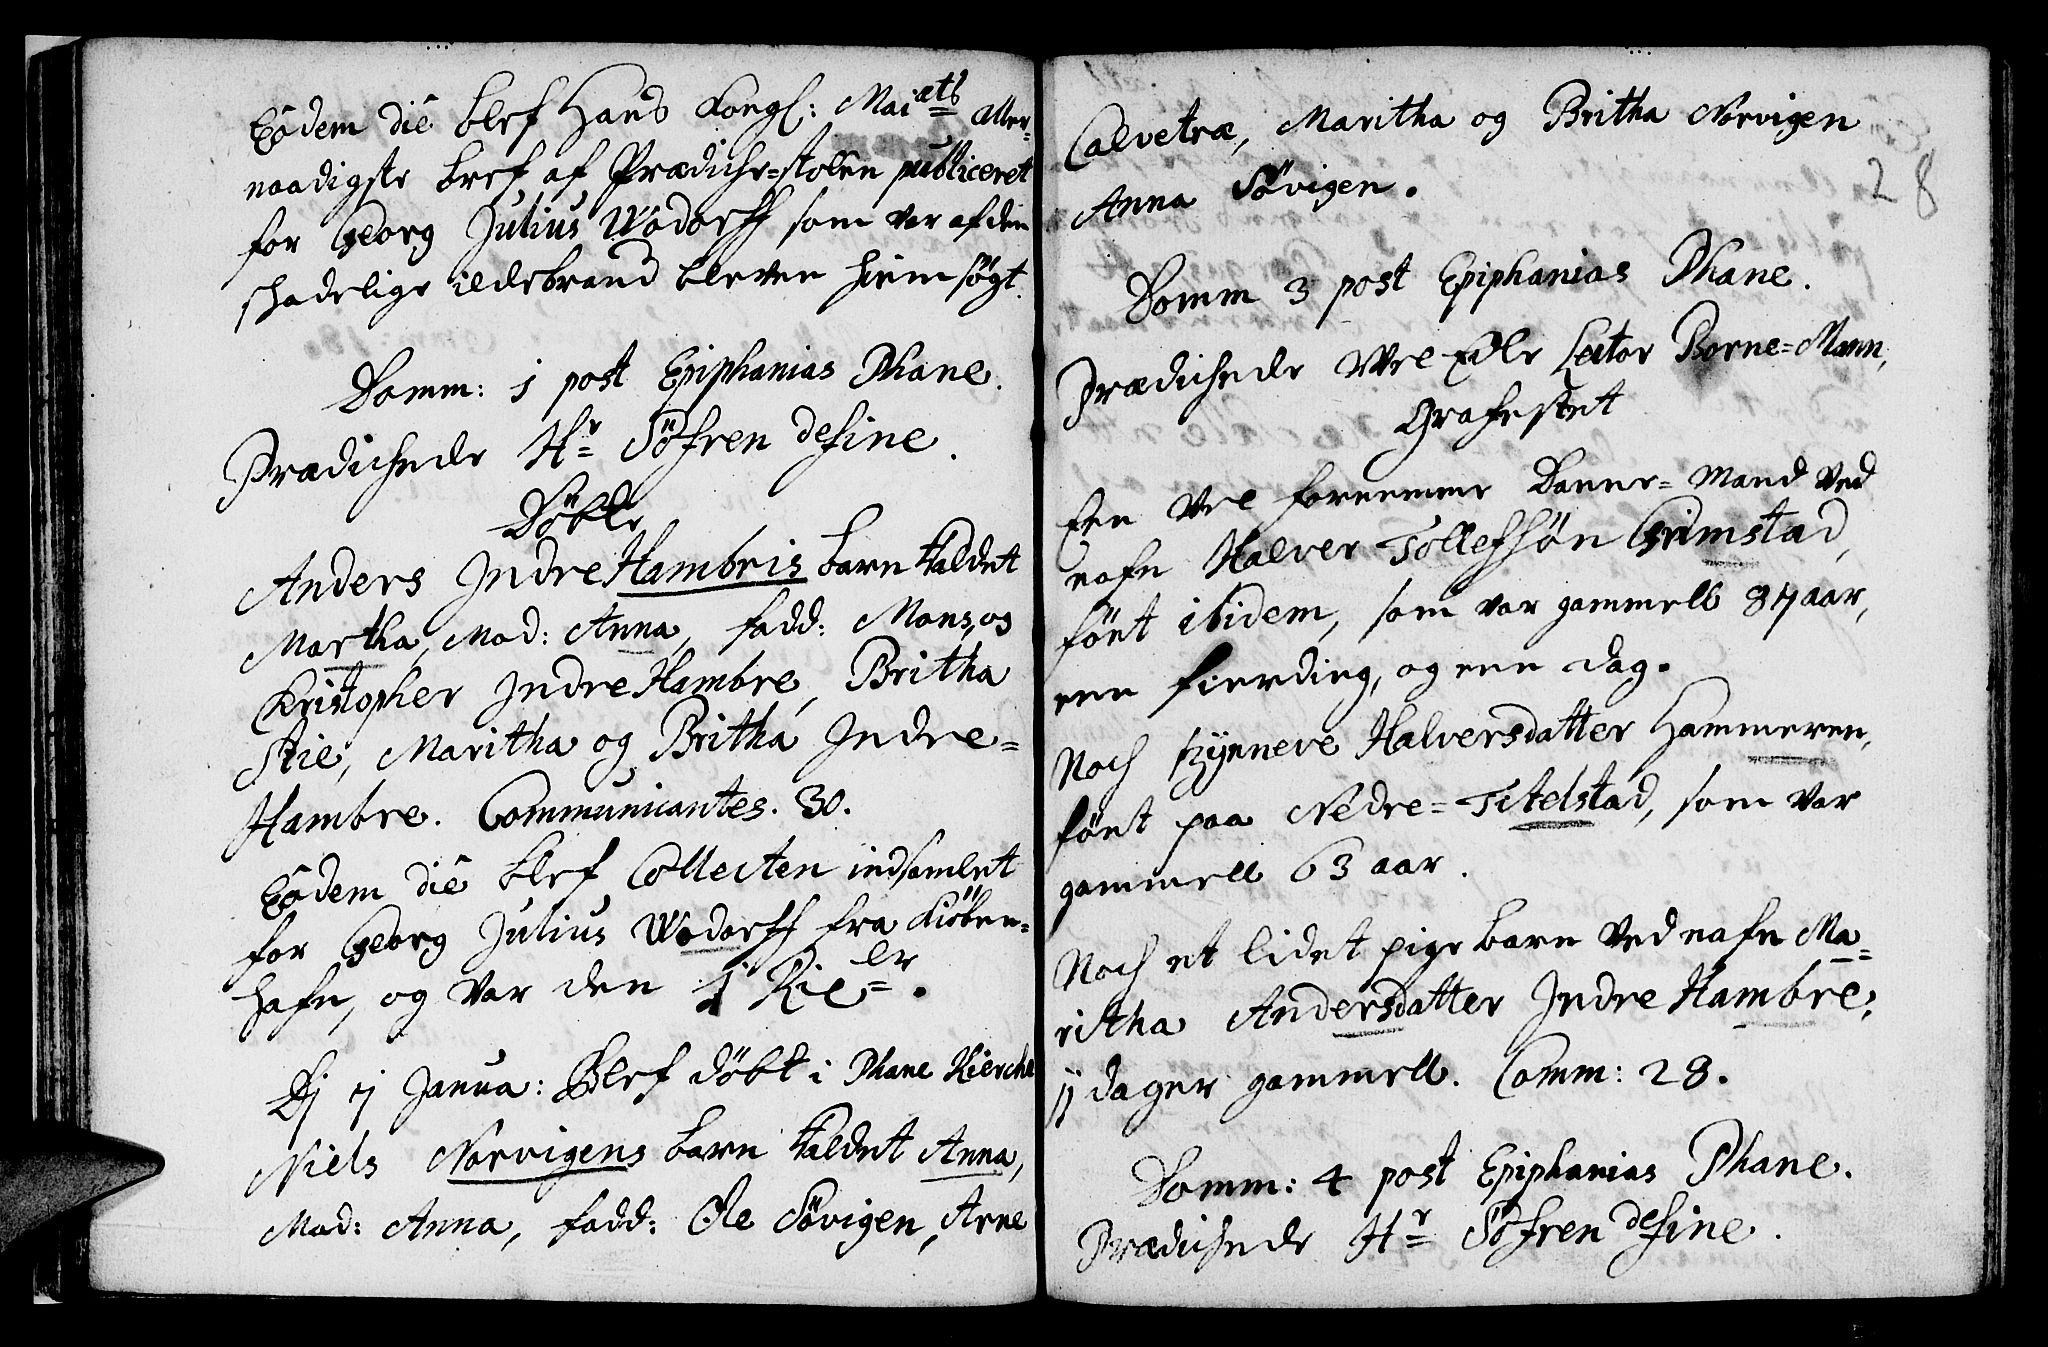 Eodem die blef Hans Kongl: Mai ætˢ aller-
naadigste bref af Prædiche-stolen publiceret
for Georg Julius Wodorff som var af den
skadelige ildebrand bleven hiemsøgt.
Domm: 1 post Epiphanias Phane.
Prædichede Hr Söfren de fine.
Döbte
Anders Indre Hambris barn kaldet
Martha, Mod: Anna, fadd: Mons, og
Christopher Indre Hambre, Britha
Stie, Maritha og Britha Indre-
Hambre. Communicantes. 30.
Eodem die blef Collecten indsamlet
for Georg Julius Wodorff fra Kiöben-
hafn, og var den 1 Rixdlr.
Dj 7 Janua: Blef döbt i Phane Kierche
Niels Norvigens barn kaldet Anna,
Mod: Anna, fadd: Ole Sövigen, Arne
28
Calvetræ, Maritha og Britha Norvigen
Anna Sövigen.
Domm 3 post Epiphanias Phane.
Prædichede Wel Edle Lector Borne-Mann,
Grafestet
Een vel fornemme Danne-Mand ved
nafn Halver Tollefsön Grimstad,
fönt ibidem, som var gammell 87 aar,
een fierding, og een dag.
Noch Synneve Halversdatter Hammeren,
fönt paa Nedre-Titelstad, som var
gammell 63 aar.
Noch et lidet pige barn ved nafn Ma-
ritha Andersdatter Indre Hambre,
11 dager gammell. Comm: 28.
Domm: 4 post Epiphanias Phane.
Prædichede Hr Söfren de fine.